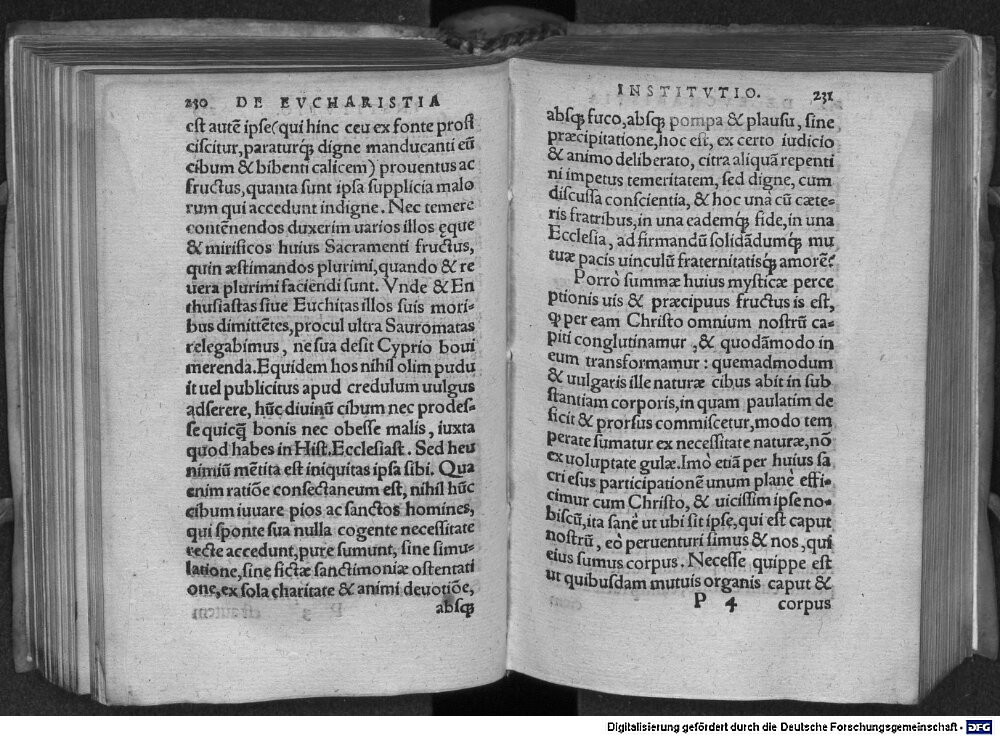 230 DE EVCHARISTIA
est autē ipse (qui hinc ceu ex fonte prosi
ciscitur, paraturq́ꝫ digne manducanti eū
cibum & bibenti calicem) prouentus ac
fructus, quanta sunt ipsa supplicia malo
rum qui accedunt indigne. Nec temere
contēnendos duxerim uarios illos ęque
& mirificos huius Sacramenti fructus,
quin æstimandos plurimi, quando & re
uera plurimi faciendi sunt. Vnde & En
thusiastas siue Euchitas illos suis mori-
bus dimittētes, procul ultra Sauromatas
relegabimus, ne sua desit Cyprio boui
merenda. Equidem hos nihil olim pudu
it uel publicitus apud credulum uulgus
adserere, hūc diuinū cibum nec prodes-
se quicꝗ̄ bonis nec obesse malis, iuxta
quod habes in Hist. Ecclesiast. Sed heu
nimiū mētita est iniquitas ipsa sibi. Qua
enim ratiōe consectaneum est, nihil hūc
cibum iuuare pios ac sanctos homines,
qui sponte sua nulla cogente necessitate
recte accedunt, pure sumunt, sine simu-
latione, sine fictæ sanctimoniæ ostentati
one, ex sola charitate & animi deuotiōe,
absqꝫ
INSTITVTIO. 231
absqꝫ fuco, absqꝫ pompa & plausu, sine
præcipitatione, hoc est, ex certo iudicio
& animo deliberato, citra aliquā repenti
ni impetus temeritatem, sed digne, cum
discussa conscientia, & hoc unà cū cæte-
ris fratribus, in una eademq́ꝫ fide, in una
Ecclesia, ad firmandū solidādumq́ꝫ mu
tuæ pacis uinculū fraternitatisq́ꝫ amorē?
Porrò summæ huius mysticæ perce
ptionis uis & præcipuus fructus is est,
ꝙ per eam Christo omnium nostrū ca-
piti conglutinamur, & quodāmodo in
eum transformamur: quemadmodum
& uulgaris ille naturæ cibus abit in sub
stantiam corporis, in quam paulatim de
ficit & prorsus commiscetur, modo tem
perate sumatur ex necessitate naturæ, nō
ex uoluptate gulæ. Imò etiā per huius sa
cri esus participationē unum planè effi-
cimur cum Christo, & uicissim ipse no-
biscū, ita sanè ut ubi sit ipse, qui est caput
nostrū, eò peruenturi simus & nos, qui
eius sumus corpus. Necesse quippe est
ut quibusdam mutuis organis caput &
P 4 corpus
Digitalisierung gefördert durch die Deutsche Forschungsgemeinschaft - DFG